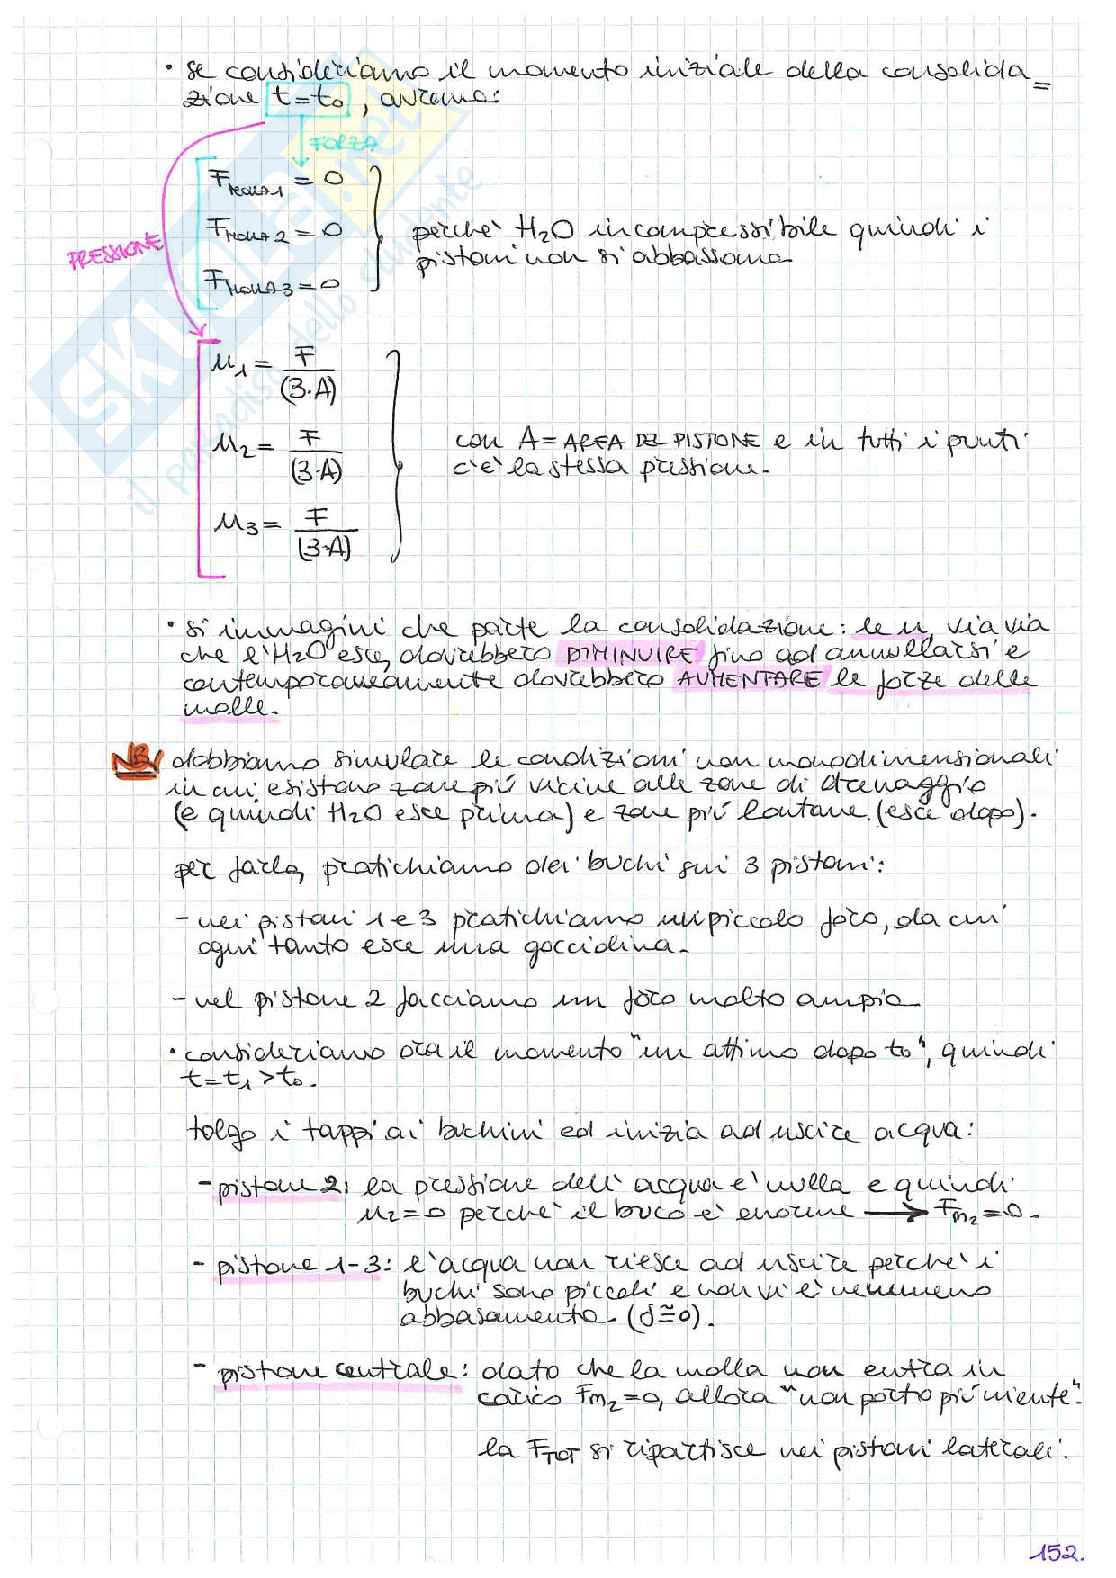 • se consideriamo il momento iniziale della consolida=
zione t=t₀, avremo:
FORZA
F MOLLA 1 = 0
F MOLLA 2 = 0
F MOLLA 3 = 0
perché H₂O incompressibile quindi i
pistoni non si abbassano
PRESSIONE
u₁ = F/(3·A)
u₂ = F/(3·A)
u₃ = F/(3·A)
con A = AREA DEL PISTONE e in tutti i punti
c'è la stessa pressione.
• si immagini che parte la consolidazione: le u, via via
che l'H₂O esce, dovrebbero DIMINUIRE fino ad annullarsi e
contemporaneamente dovrebbero AUMENTARE le forze delle
molle.
NB dobbiamo simulare le condizioni non monodimensionali
in cui esistono zone più vicine alle zone di drenaggio
(e quindi H₂O esce prima) e zone più lontane (esce dopo).
per farlo, pratichiamo dei buchi sui 3 pistoni:
- nei pistoni 1 e 3 pratichiamo un piccolo foro, da cui
ogni tanto esce una gocciolina.
- nel pistone 2 facciamo un foro molto ampio
• consideriamo ora il momento "un attimo dopo t₀", quindi
t=t₁>t₀.
tolgo i tappi ai buchini ed inizia ad uscire acqua:
- pistone 2: la pressione dell'acqua è nulla e quindi
u₂=0 perché il buco è enorme → Fm₂=0.
- pistone 1-3: l'acqua non riesce ad uscire perché i
buchi sono piccoli e non vi è nemmeno
abbassamento. (δ≅0).
- pistone centrale: dato che la molla non entra in
carico Fm₂=0, allora "non porto più niente".
la F TOT si ripartisce nei pistoni laterali.
152.
SKUOLA.net
il paradiso dello studente